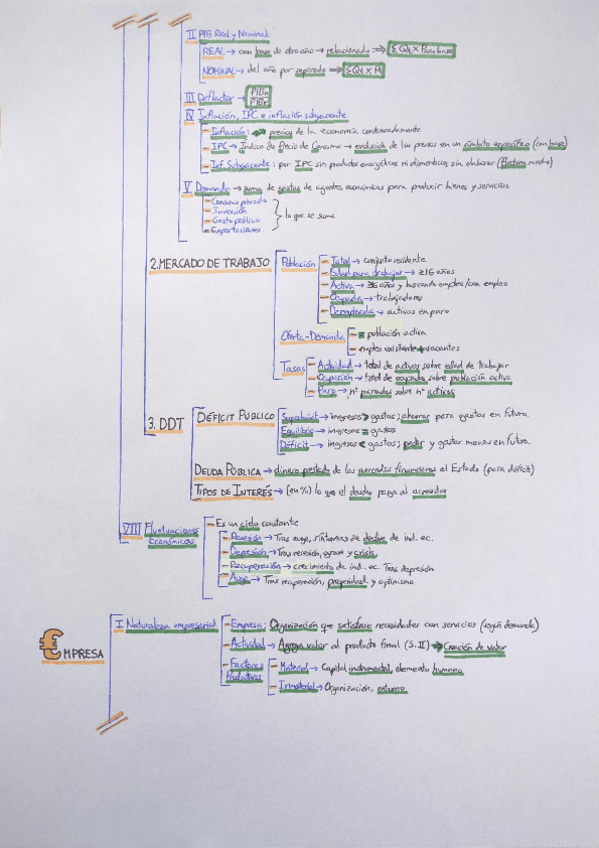 II PIB Real y Nominal
REAL → con base de otro año → relacionado ⇒ ΣQt × Paño base
NOMINAL → del año por separado ⇒ ΣQt × Pt
III Deflactor → PIBn / PIBr
IV Inflación, IPC e inflación subyacente
Inflación: precios de la economía continuadamente
IPC → Índice de Precio de Consumo → evolución de los precios en un ámbito específico (con base)
Inf. Subyacente: por IPC sin productos energéticos ni alimenticios sin elaborar (fluctúan mucho)
V Demanda → suma de gastos de agentes económicos para producir bienes y servicios
Consumo privado
Inversión
Gasto público
Exportaciones
lo que se suma
2. MERCADO DE TRABAJO
Población
Total → conjunto residente
Edad para trabajar → ≥16 años
Activa → ≥16 años y buscando empleo/con empleo
Ocupada → trabajadores
Desocupada → activos en paro
Oferta-Demanda
= población activa
empleo existente + vacantes
Tasas
Actividad → total de activos sobre edad de trabajar
Ocupación → total de ocupada sobre población activa
Paro → nº parados sobre nº activos
3. DDT
DÉFICIT PÚBLICO
Superávit → ingresos > gastos; ahorrar para gastar en futuro.
Equilibrio → ingresos = gastos
Déficit → ingresos < gastos; pedir y gastar menos en futuro.
DEUDA PÚBLICA → dinero prestado de los mercados financieros al Estado (para déficit)
TIPOS DE INTERÉS → (en %) lo que el deudor paga al acreedor
VIII Fluctuaciones Económicas
Es un ciclo constante
Recesión → Tras auge, síntomas de declive de ind. ec.
Depresión → Tras recesión, grave y crisis.
Recuperación → crecimiento de ind. ec. Tras depresión
Auge → Tras recuperación, prosperidad y optimismo
€MPRESA
I Naturaleza empresarial
Empresa: Organización que satisface necesidades con servicios (según demanda)
Actividad → Agrega valor al producto final (S.II) → Creación de valor
Factores Productivos
Material → Capital instrumental, elemento humano
Inmaterial → Organización, entorno